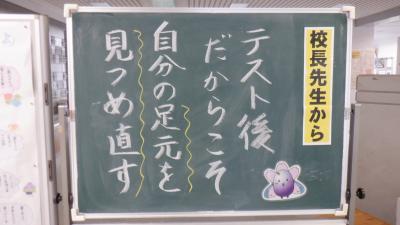 校長先生から
テスト後
だからこそ
自分の足元を
見つめ直す